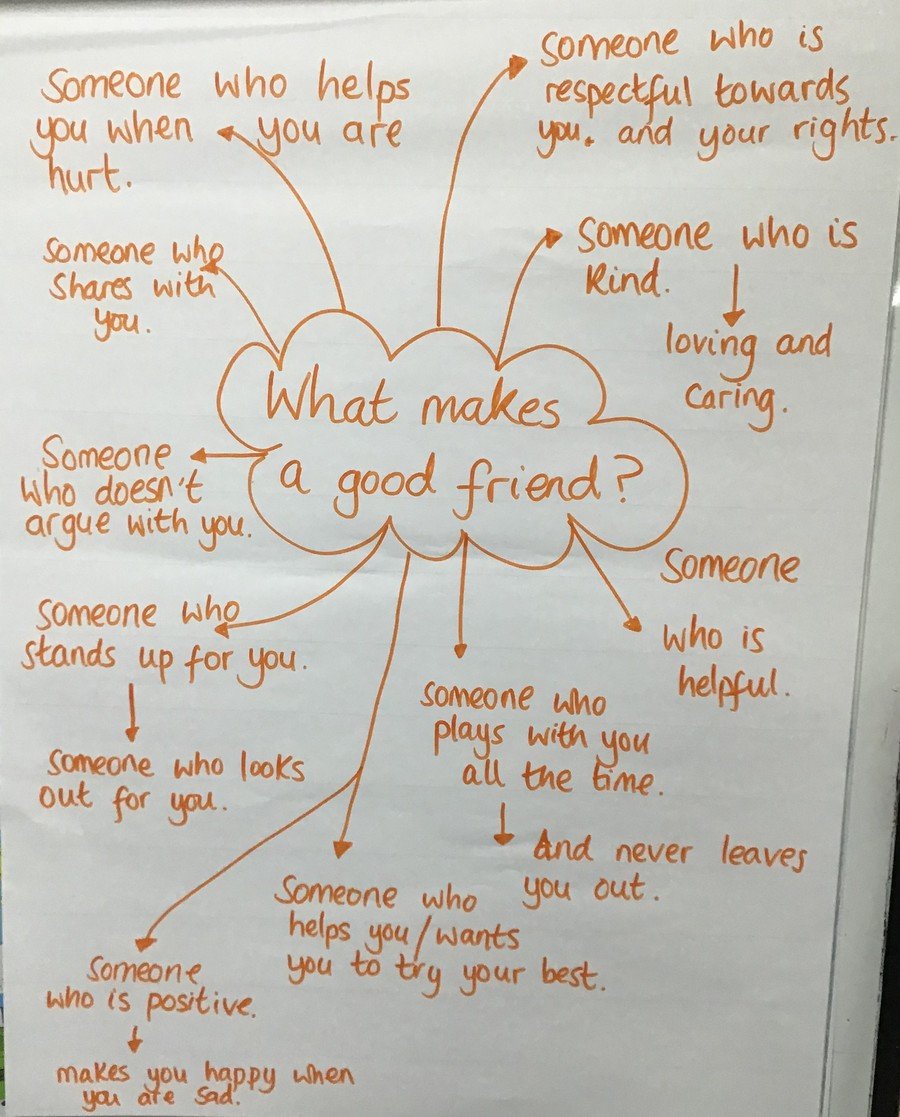 Someone who helps
you when you are
hurt.
Someone who is
respectful towards
you. and your rights.
Someone who
shares with
you.
Someone who is
kind.
loving and
caring.
What makes
a good friend?
Someone
who doesn't
argue with you.
Someone
who is
helpful.
Someone who
stands up for you.
Someone who looks
out for you.
someone who
plays with you
all the time.
And never leaves
you out.
Someone who
helps you/wants
you to try your best.
Someone
who is positive.
makes you happy when
you are sad.